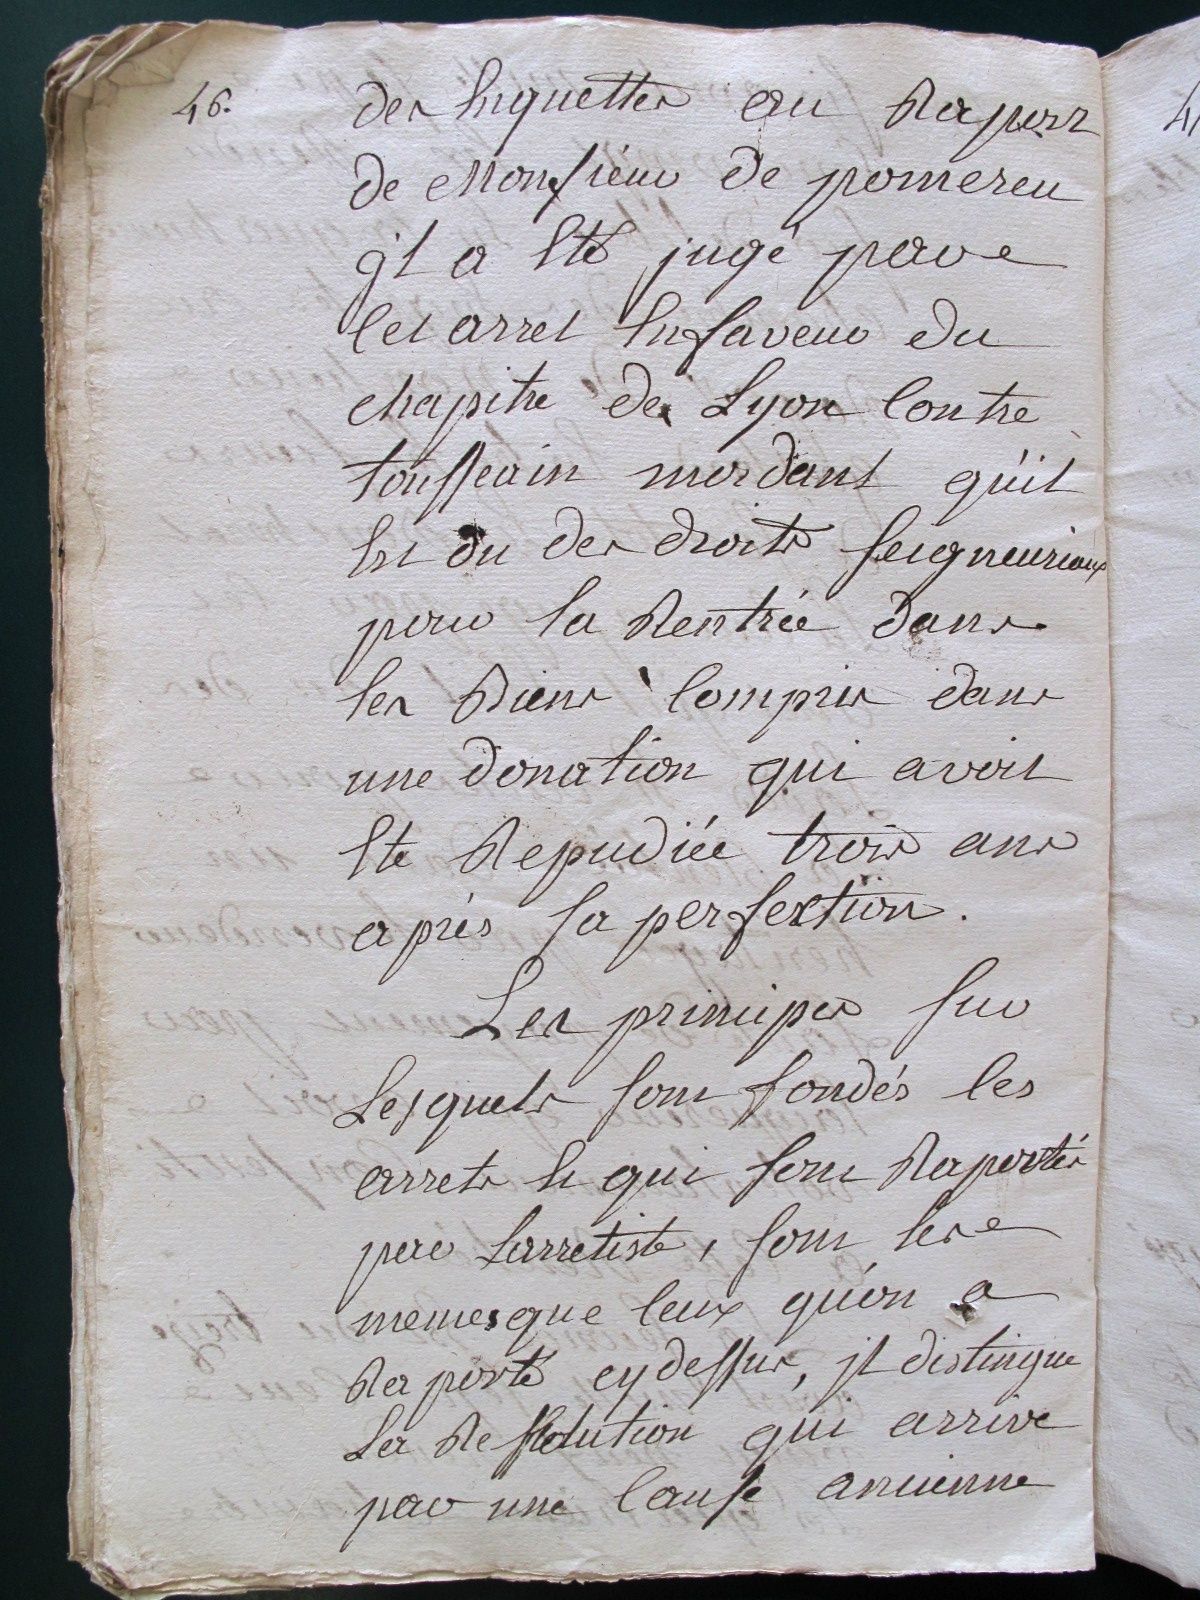 46.
des Enquettes au Raport
de Monsieur de pomereu
jl a Eté jugé par
Cet arret En faveur du
chapitre de Lyon Contre
toussain mordant qu'il
Est du des droits seigneuriaux
pour la Rentrée dans
les Biens Compris dans
une donation qui avoit
Eté Repudiée trois ans
aprés sa perfection.
Les principes sur
Lesquels sont fondés les
arrets Et qui sont Raportés
par Larretiste, sont les
memes que Ceux qu'on a
Raporté cy dessus, jl distingue
La Resolution qui arrive
par une Cause ancienne